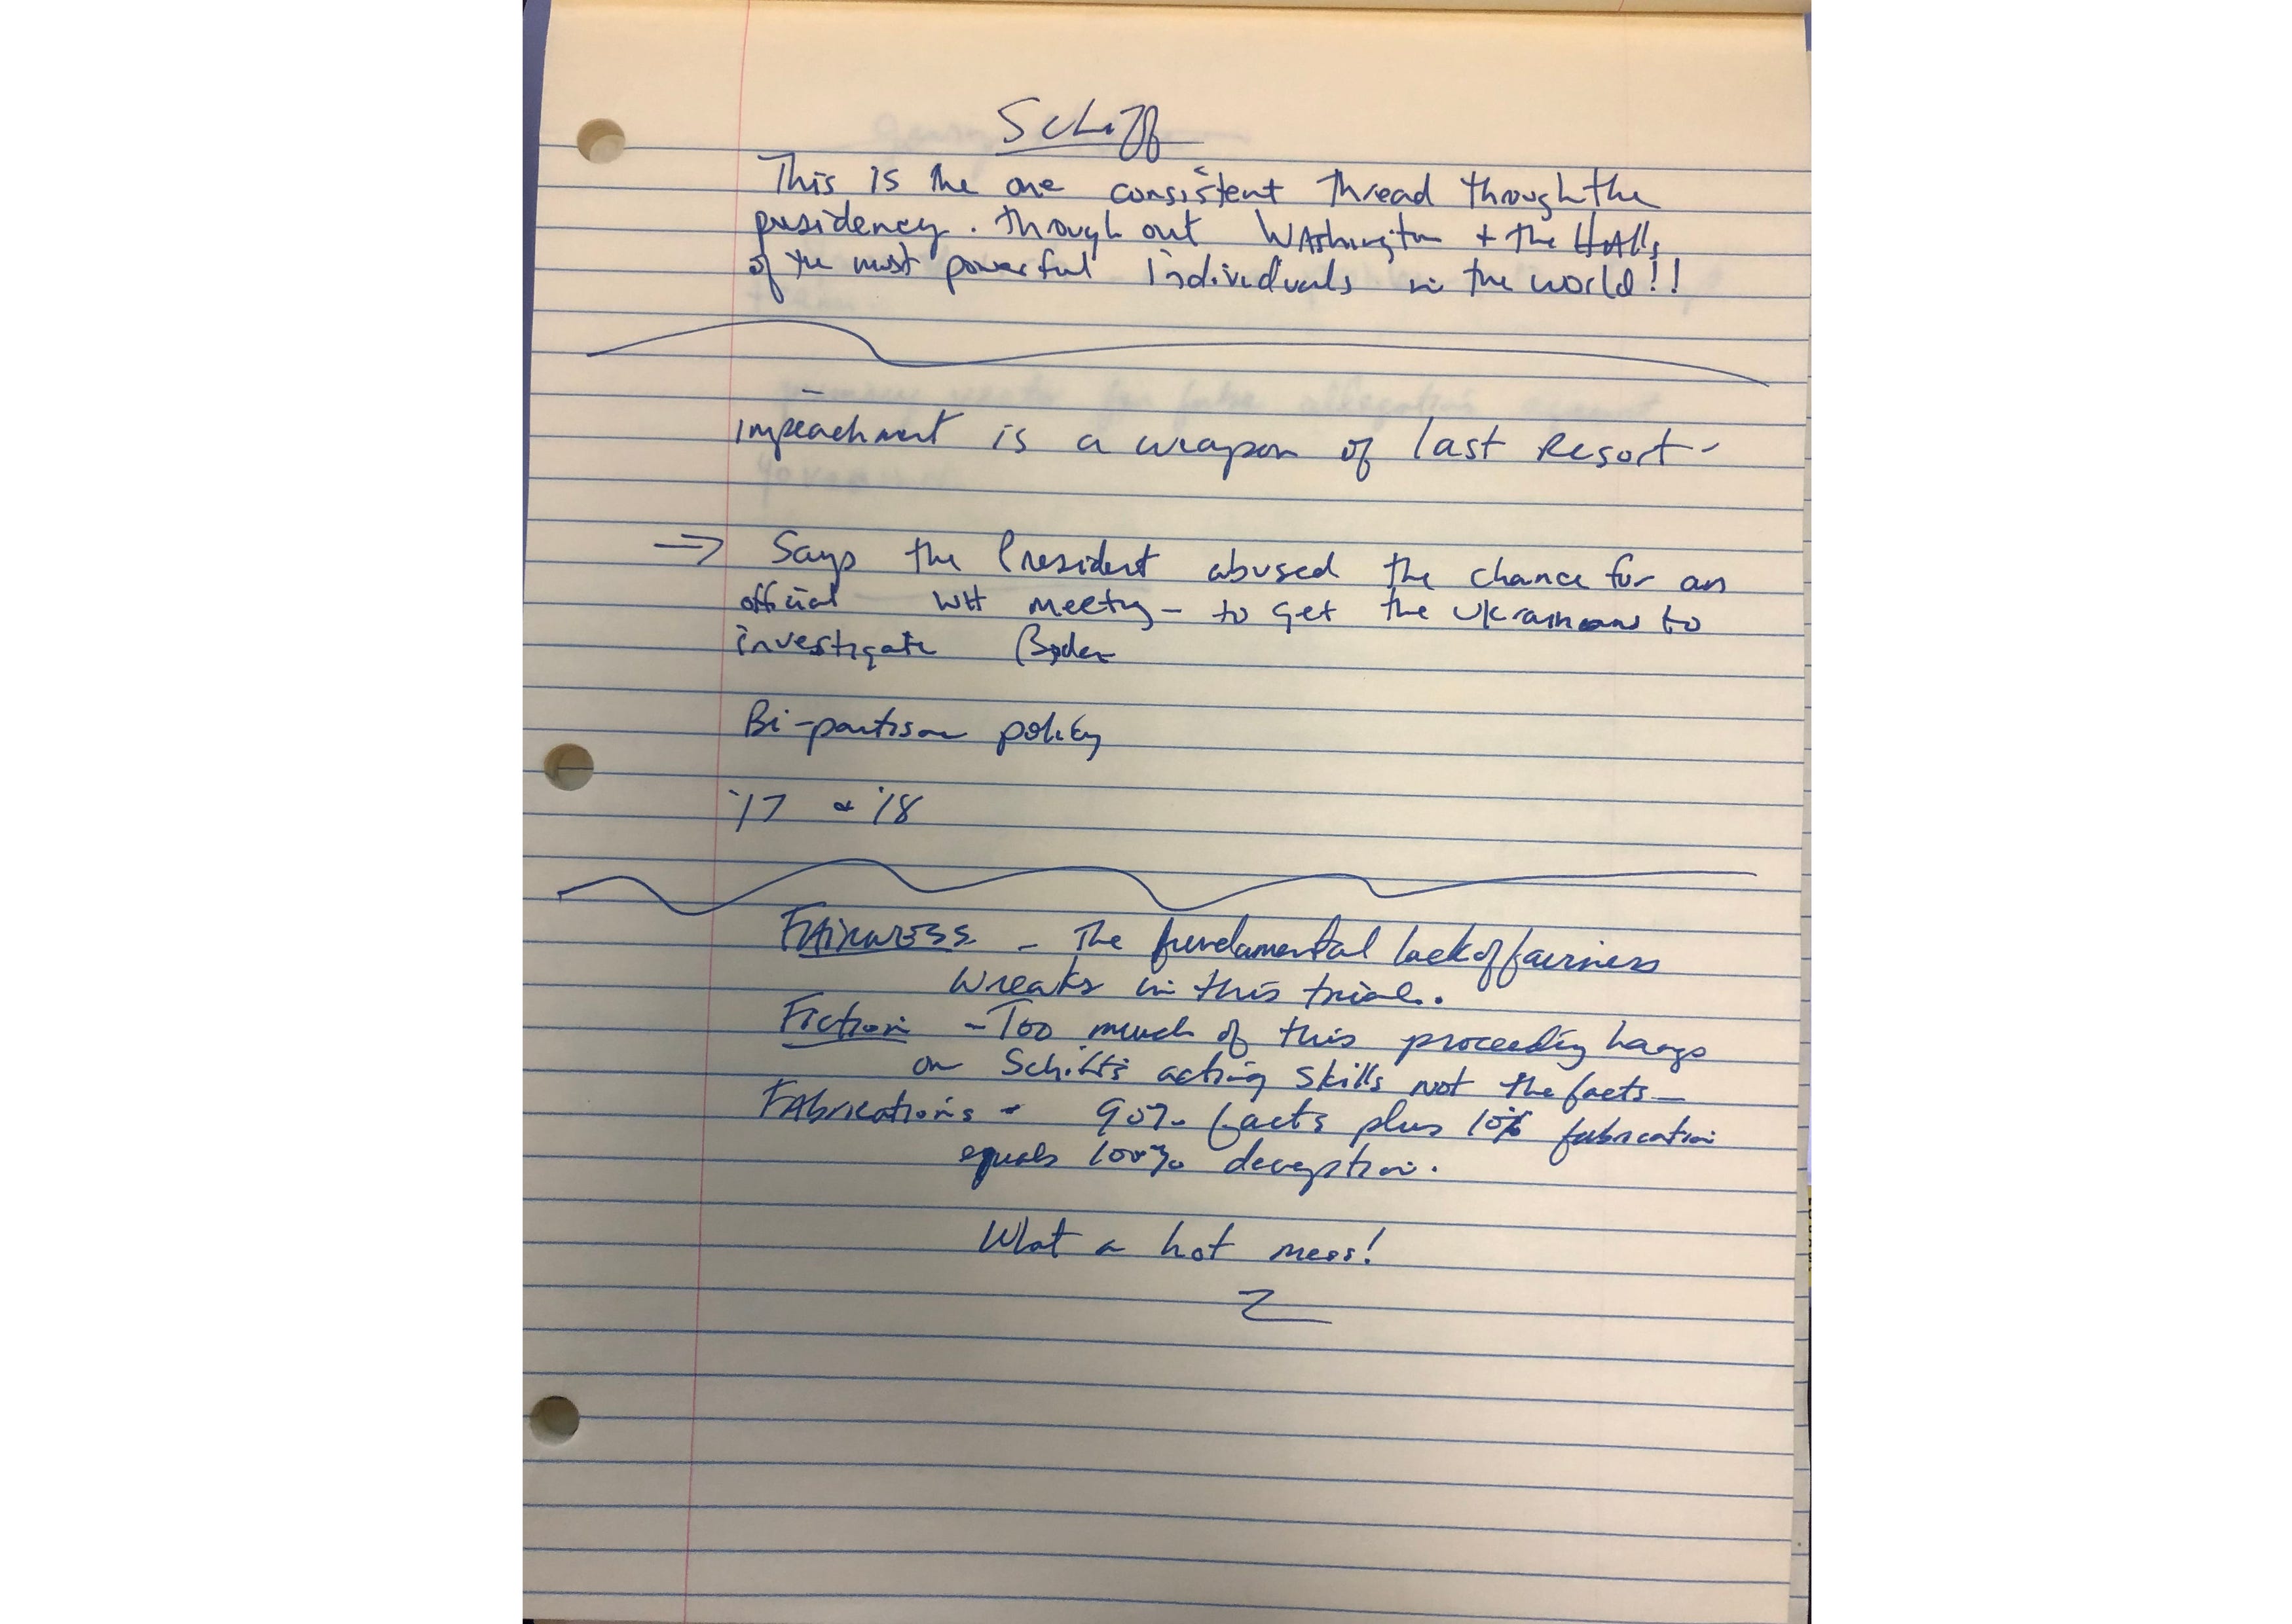 Schiff
This is the one consistent thread through the
presidency. through out Washington + the HAlls
of the most powerful individuals in the world!!
impeachment is a weapon of last Resort-
⇒ Says the President abused the chance for an
official WH meeting - to get the Ukrainians to
investigate Biden
Bi-partisan policy
'17 & '18
FAirness - The fundamental lack of fairness
wreaks in this trial.
Fiction - Too much of this proceeding hangs
on Schiff's acting skills not the facts-
FAbrications - 90% facts plus 10% fabrication
equals 100% deception.
What a hot mess!